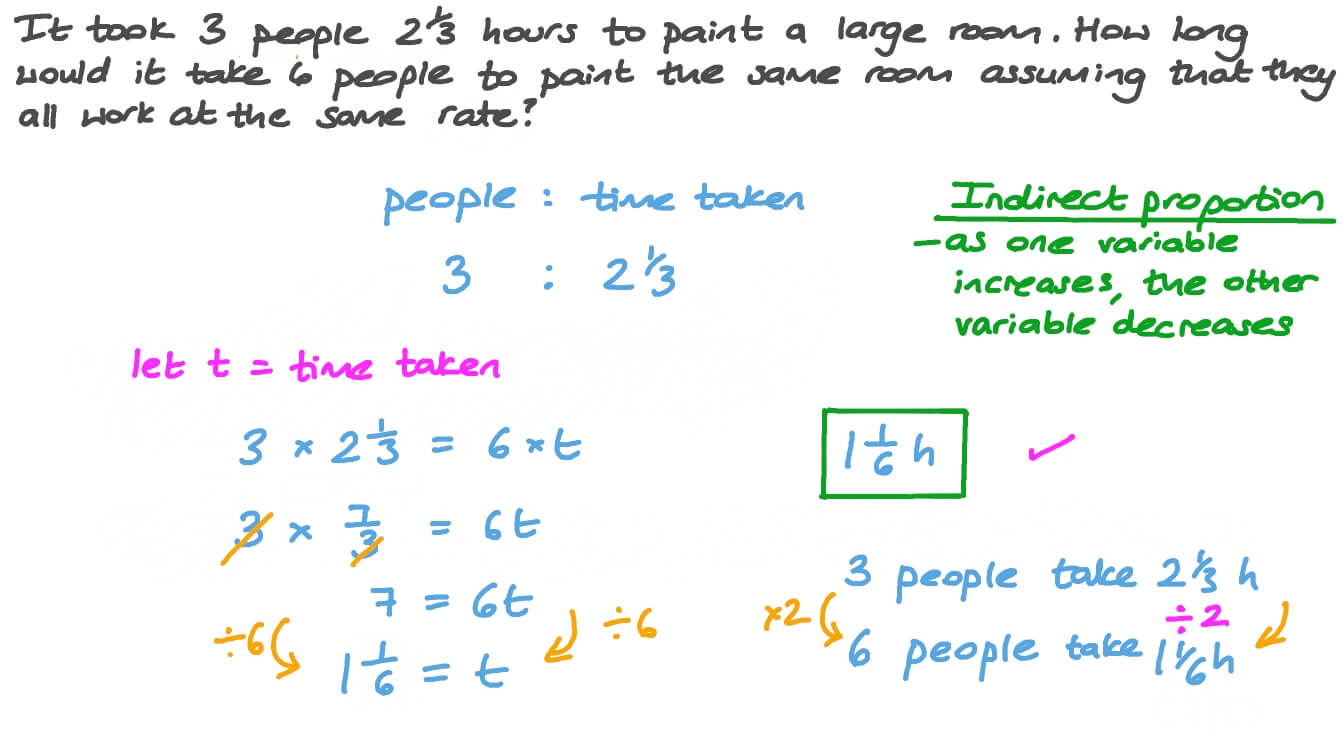 It took 3 people 2⅓ hours to paint a large room. How long
would it take 6 people to paint the same room assuming that they
all work at the same rate?
people : time taken
3 : 2⅓
Indirect proportion
– as one variable
increases, the other
variable decreases
let t = time taken
3 × 2 1/3 = 6 × t
3 × 7/3 = 6t
7 = 6t
÷6 ÷6
1 1/6 = t
1 1/6 h ✓
3 people take 2⅓ h
×2 ÷2
6 people take 1 1/6 h